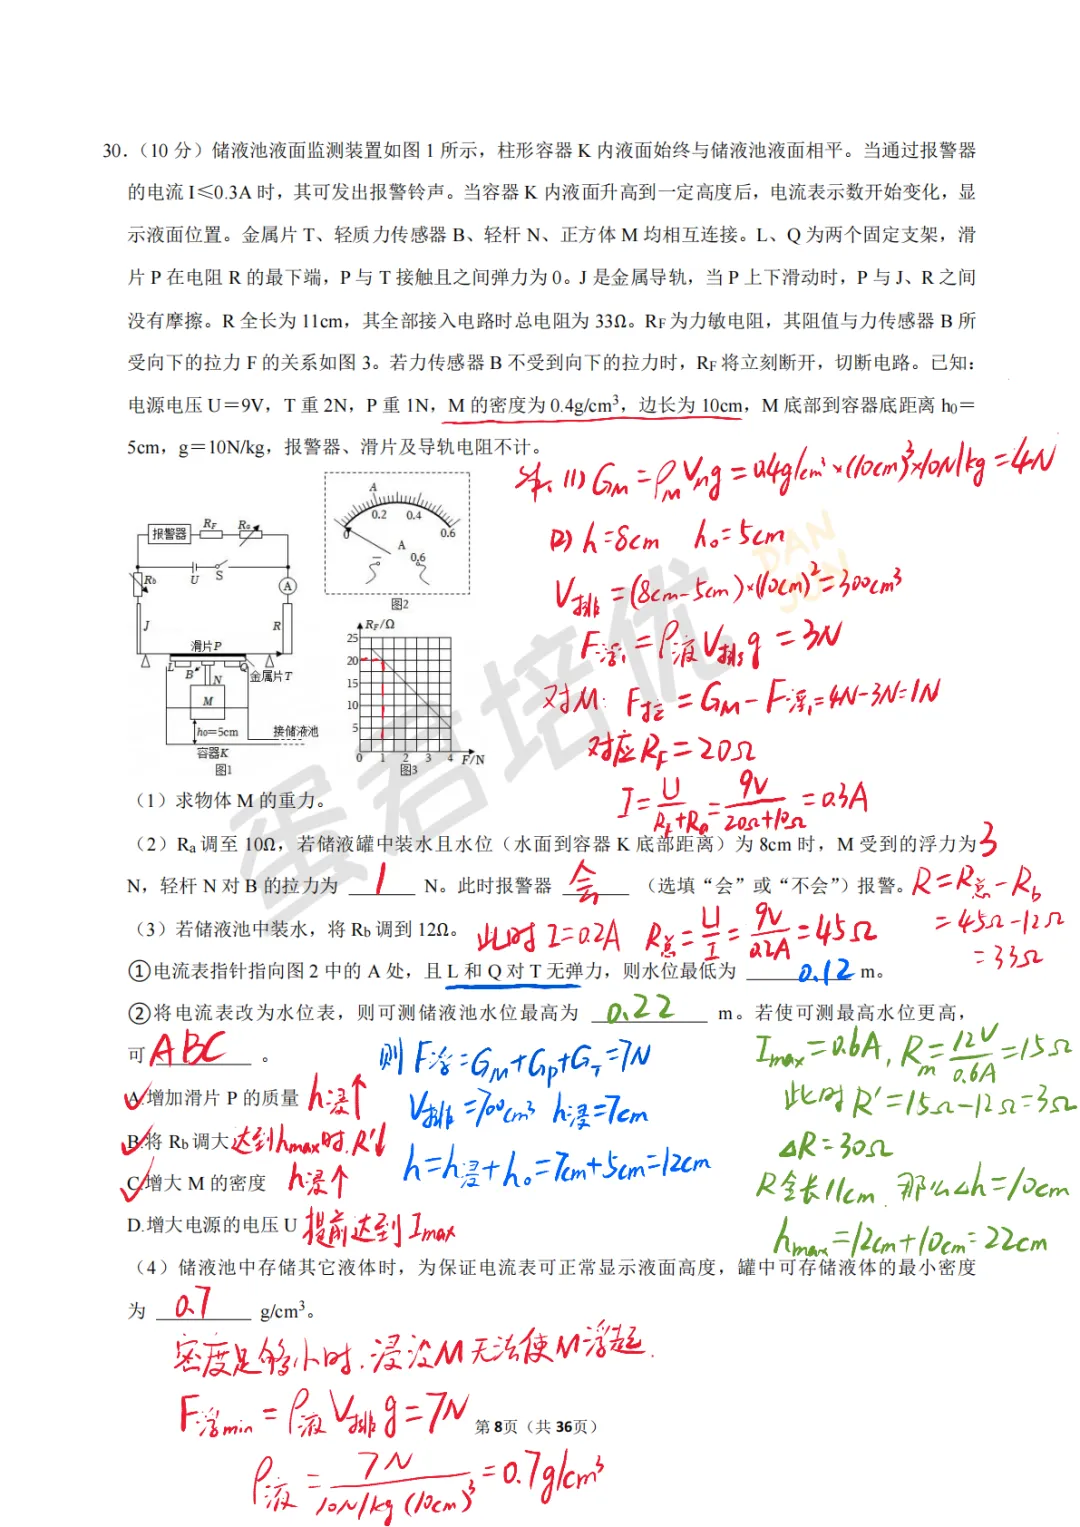 30.（10 分）储液池液面监测装置如图 1 所示，柱形容器 K 内液面始终与储液池液面相平。当通过报警器
的电流 I≤0.3A 时，其可发出报警铃声。当容器 K 内液面升高到一定高度后，电流表示数开始变化，显
示液面位置。金属片 T、轻质力传感器 B、轻杆 N、正方体 M 均相互连接。L、Q 为两个固定支架，滑
片 P 在电阻 R 的最下端，P 与 T 接触且之间弹力为 0。J 是金属导轨，当 P 上下滑动时，P 与 J、R 之间
没有摩擦。R 全长为 11cm，其全部接入电路时总电阻为 33Ω。RF为力敏电阻，其阻值与力传感器 B 所
受向下的拉力 F 的关系如图 3。若力传感器 B 不受到向下的拉力时，RF 将立刻断开，切断电路。已知：
电源电压 U＝9V，T 重 2N，P 重 1N，M 的密度为 0.4g/cm³，边长为 10cm，M 底部到容器底距离 h₀＝
5cm，g＝10N/kg，报警器、滑片及导轨电阻不计。
解、(1) G_M = ρ_M V_M g = 0.4g/cm³×(10cm)³×10N/kg = 4N
(2) h=8cm h₀=5cm
V排=(8cm-5cm)×(10cm)²=300cm³
F浮₁=ρ液V排₁g=3N
对M: F拉=G_M-F浮₁=4N-3N=1N
对应R_F=20Ω
I=U/(R_F+Ra)=9V/(20Ω+10Ω)=0.3A
报警器 RF Ra
Rb U S A
J R
滑片P
L B Q 金属片T
N
M
h₀=5cm 接储液池
容器K
图1
A
0 0.2 0.4 0.6
A
0.6
图2
RF/Ω
25
20
15
10
5
0 1 2 3 4 F/N
图3
（1）求物体 M 的重力。
（2）Ra 调至 10Ω，若储液罐中装水且水位（水面到容器 K 底部距离）为 8cm 时，M 受到的浮力为 3
N，轻杆 N 对 B 的拉力为 1 N。此时报警器 会 （选填“会”或“不会”）报警。
R=R总-Rb
=45Ω-12Ω
=33Ω
（3）若储液池中装水，将 Rb 调到 12Ω。 此时 I=0.2A R总=U/I=9V/0.2A=45Ω
①电流表指针指向图 2 中的 A 处，且 L 和 Q 对 T 无弹力，则水位最低为 0.12 m。
②将电流表改为水位表，则可测储液池水位最高为 0.22 m。若使可测最高水位更高，
可 ABC 。
则 F浮=G_M+G_P+G_T=7N
V排=700cm³ h浸=7cm
h=h浸+h₀=7cm+5cm=12cm
I_max=0.6A, R_m=12V/0.6A=15Ω
此时 R′=15Ω-12Ω=3Ω
△R=30Ω
R全长11cm，那么△h=10cm
h_max=12cm+10cm=22cm
A.增加滑片 P 的质量 h浸↑
B.将 Rb调大 达到h_max时，R′↓
C.增大 M 的密度 h浸↑
D.增大电源的电压 U 提前达到I_max
（4）储液池中存储其它液体时，为保证电流表可正常显示液面高度，罐中可存储液体的最小密度
为 0.7 g/cm³。
密度足够小时，浸没M无法使M浮起.
F浮min=ρ液V排g=7N
ρ液=7N/(10N/kg(10cm)³)=0.7g/cm³
第 8页（共 36页）
蛋君培优
DAN
JUN